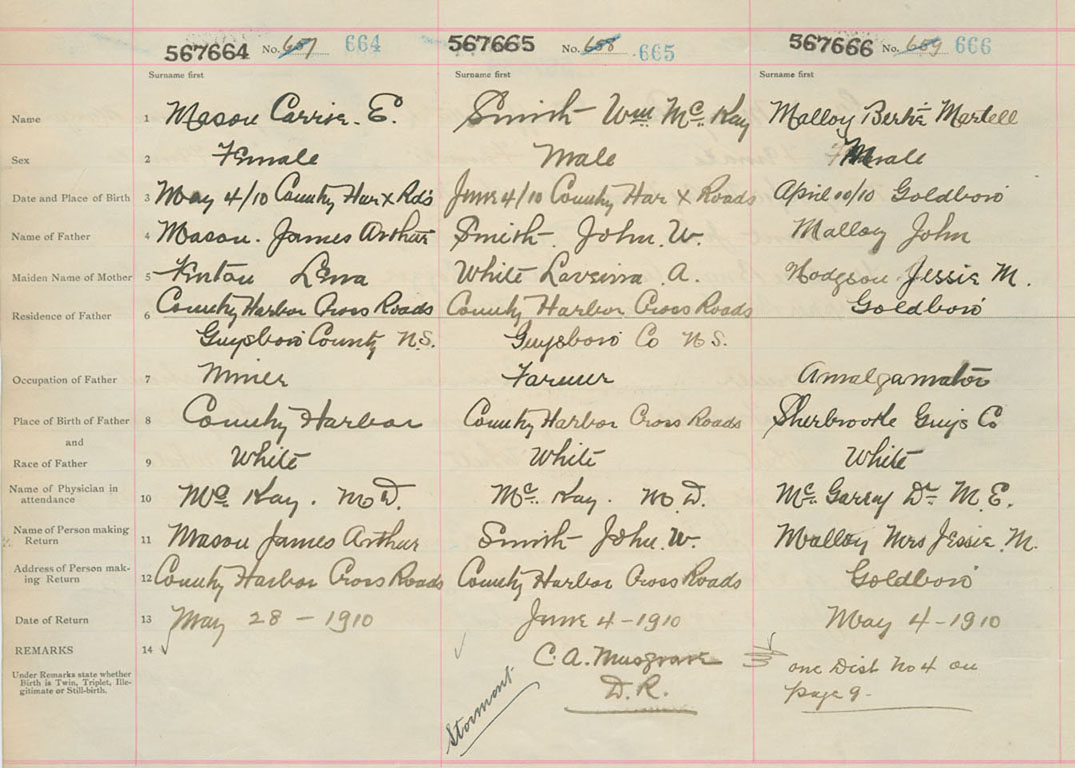 567664 No. 657 664 567665 No. 658 665 567666 No. 659 666
Surname first Surname first Surname first
Name 1 Mason Carrie. E. Smith Wm Mc Kay Malloy Bertie Martell
Sex 2 Female Male Female
Date and Place of Birth 3 May 4/10 Country Har x Rds June 4/10 Country Har x Roads April 10/10 Goldboro
Name of Father 4 Mason. James Arthur Smith John. W. Malloy John
Maiden Name of Mother 5 Fenton Lena White A. Hodgson Jessie M.
Residence of Father 6 Country Harbor Cross Roads Country Harbor Cross Roads Goldboro
Guysboro County N.S. Guysboro Co N.S.
Occupation of Father 7 Miner Farmer Amalgamator
Place of Birth of Father 8 Country Harbor Country Harbor Cross Roads Sherbrooke Guys Co
and
Race of Father 9 White White White
Name of Physician in
attendance 10 Mc Kay. M.D. Mc Kay. M.D. Mc Garry Dr M.E.
Name of Person making
Return 11 Mason James Arthur Smith John. W. Malloy Mrs Jessie. M.
Address of Person mak-
ing Return 12 Country Harbor Cross Roads Country Harbor Cross Roads Goldboro
Date of Return 13 May 28 - 1910 June 4 - 1910 May 4 - 1910
REMARKS 14 C. A. Musgrave one Dist No 4 on
Under Remarks state whether
Birth is Twin, Triplet, Ille-
gitimate or Still-birth.
D.R. page 9.
Stormont